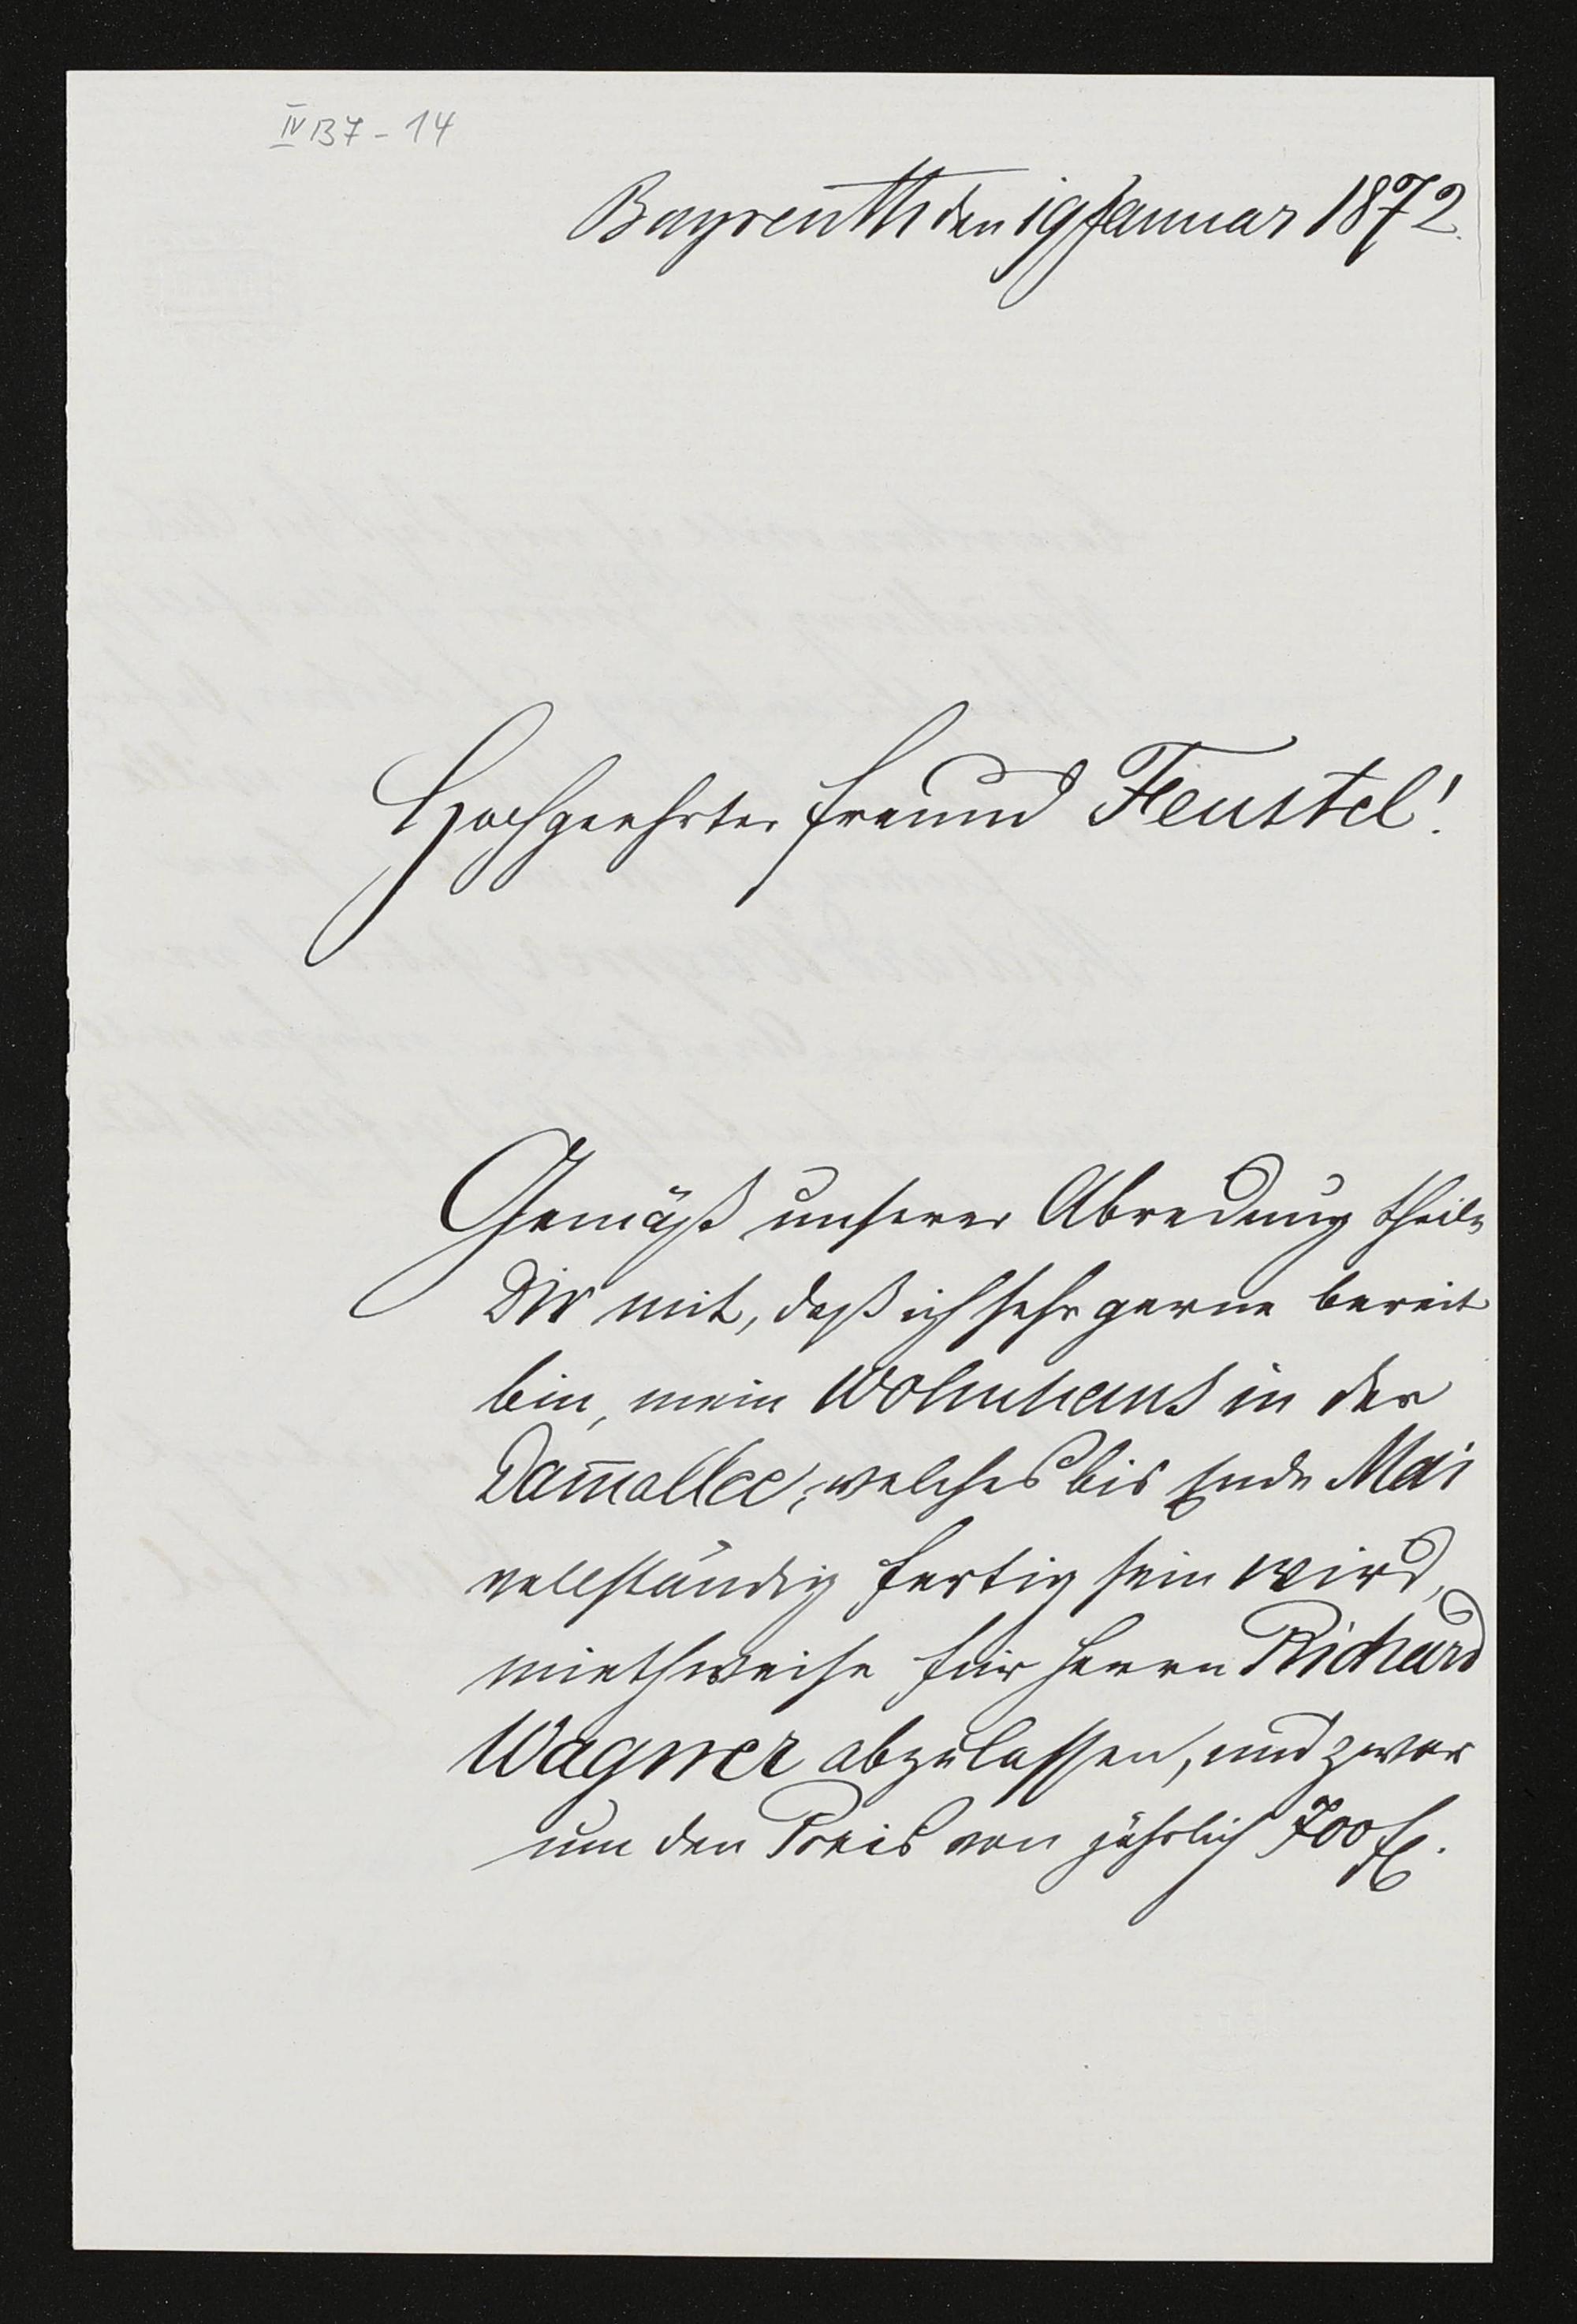 IV B 7 - 14
Bayreuth den 19 Januar 1872.
Hochgeehrter Freund Feustel!
Gemäß unserer Abredung theile
Dir mit, daß ich sehr gerne bereit
bin, mein Wohnhaus in der
Dam̅allee, welches bis Ende Mai
vollständig fertig sein wird,
miethweise für Herrn Richard
Wagner abzulassen, und zwar
um den Preis von jährlich 700 fl.